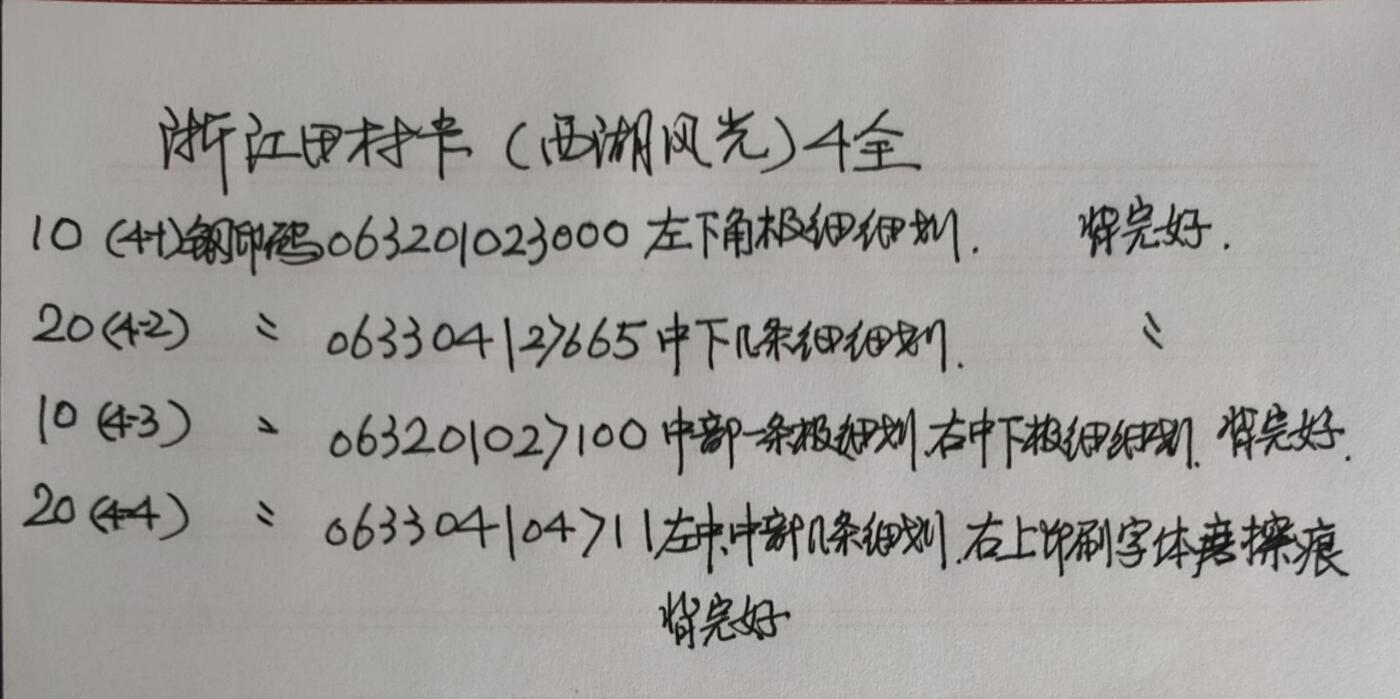 浙江田村卡(西湖风光)4全
10 (4-1)钢印码063201023000 左下角极细细划. 背完好.
20(4-2) 〃 063304127665 中下几条细细划. 〃
10(4-3) 〃 063201027100 中部一条极细划.右中下极细细划. 背完好.
20(4-4) 〃 063304104711左中.中部几条细划.右上印刷字体磨擦痕
背完好